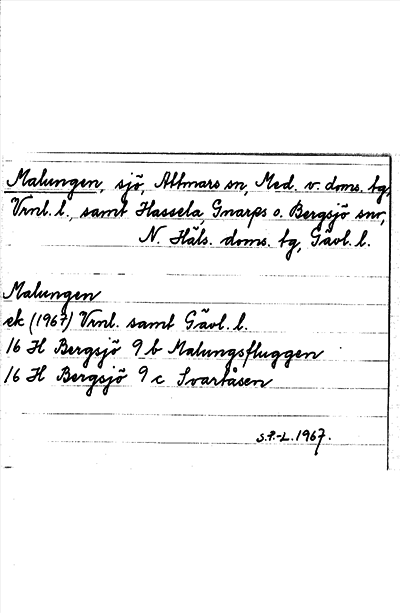 Malungen, sjö, Attmars sn, Med. v. doms. tg,
Vrnl. l., samt Hassela, Gnarps o. Bergsjö snr,
N. Häls. doms. tg, Gävl. l.
Malungen
ek (1967) Vrnl. samt Gävl. l.
16 H Bergsjö 9 b Malungsfluggen
16 H Bergsjö 9 c Svartåsen
S.P.-L. 1967.